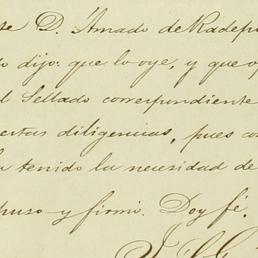 te D. Amado de Radep
o dijo: que lo oye, y que o
l Sellado correspondiente
ertas diligencias, pues co
a tenido la necesidad de
puso y firmó. Doy fé.